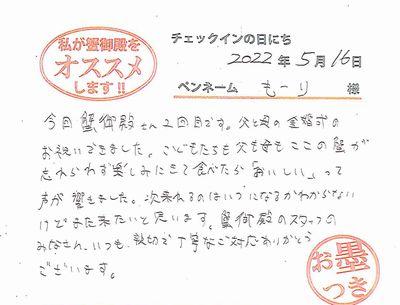 私が蟹御殿を
オススメ
します!!
チェックインの日にち
2022年5月16日
ペンネーム もーり 様
今回蟹御殿さん2回目です。父と母の金婚式の
お祝いできました。こどもたちも父も母もここの蟹が
忘れられず楽しみにきて食べたら「おいしい」って
声が響きました。次来れるのはいつになるかわからない
けどまた来たいと思います。蟹御殿のスタッフの
みなさん、いつも、親切で丁寧なご対応ありがとう
ございます。
お墨
つき